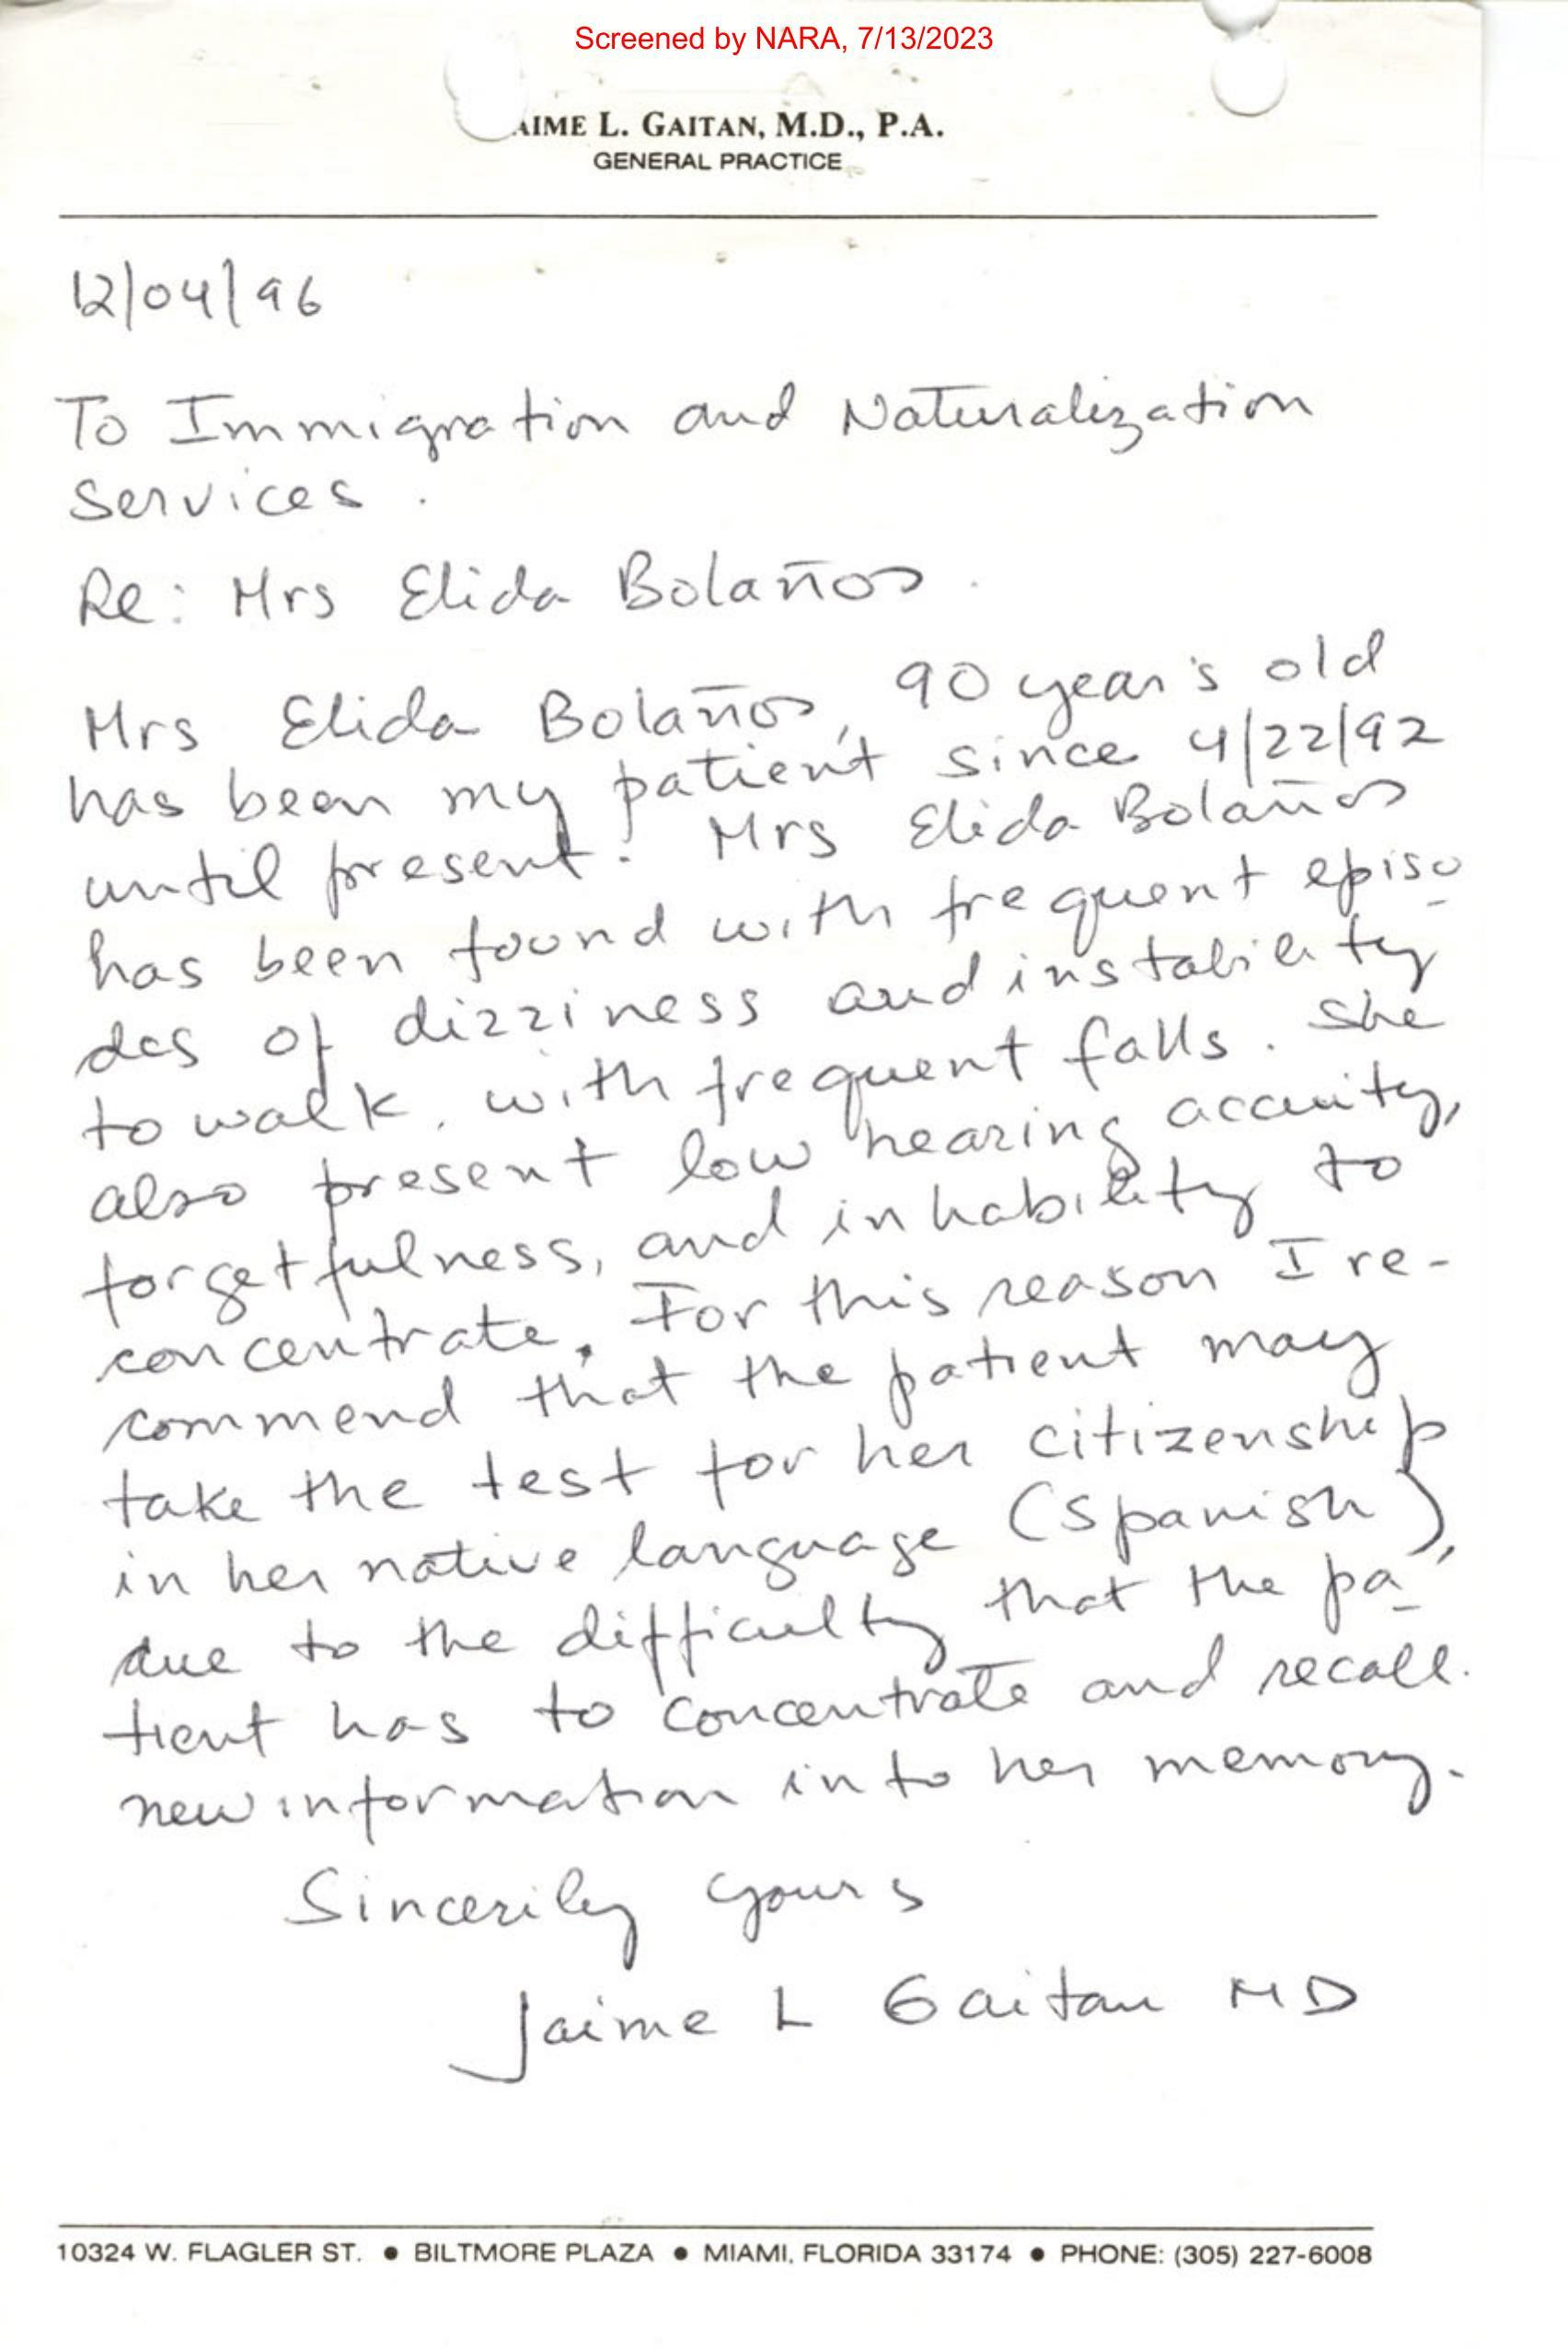 Screened by NARA, 7/13/2023
AIME L. GAITAN, M.D., P.A.
GENERAL PRACTICE
12/04/96
To Immigration and Naturalization
Services.
Re: Mrs Elida Bolaños.
Mrs Elida Bolaños, 90 year's old
has been my patient since 4/22/92
until present. Mrs Elida Bolaños
has been found with frequent episo-
des of dizziness and instability
to walk, with frequent falls. She
also present low hearing accuity,
forgetfulness, and inhability to
concentrate. For this reason I re-
commend that the patient may
take the test for her citizenship
in her native language (Spanish),
due to the difficulty that the pa-
tient has to concentrate and recall
new information into her memory.
Sincerily yours
Jaime L Gaitan MD
10324 W. FLAGLER ST. ● BILTMORE PLAZA ● MIAMI, FLORIDA 33174 ● PHONE: (305) 227-6008